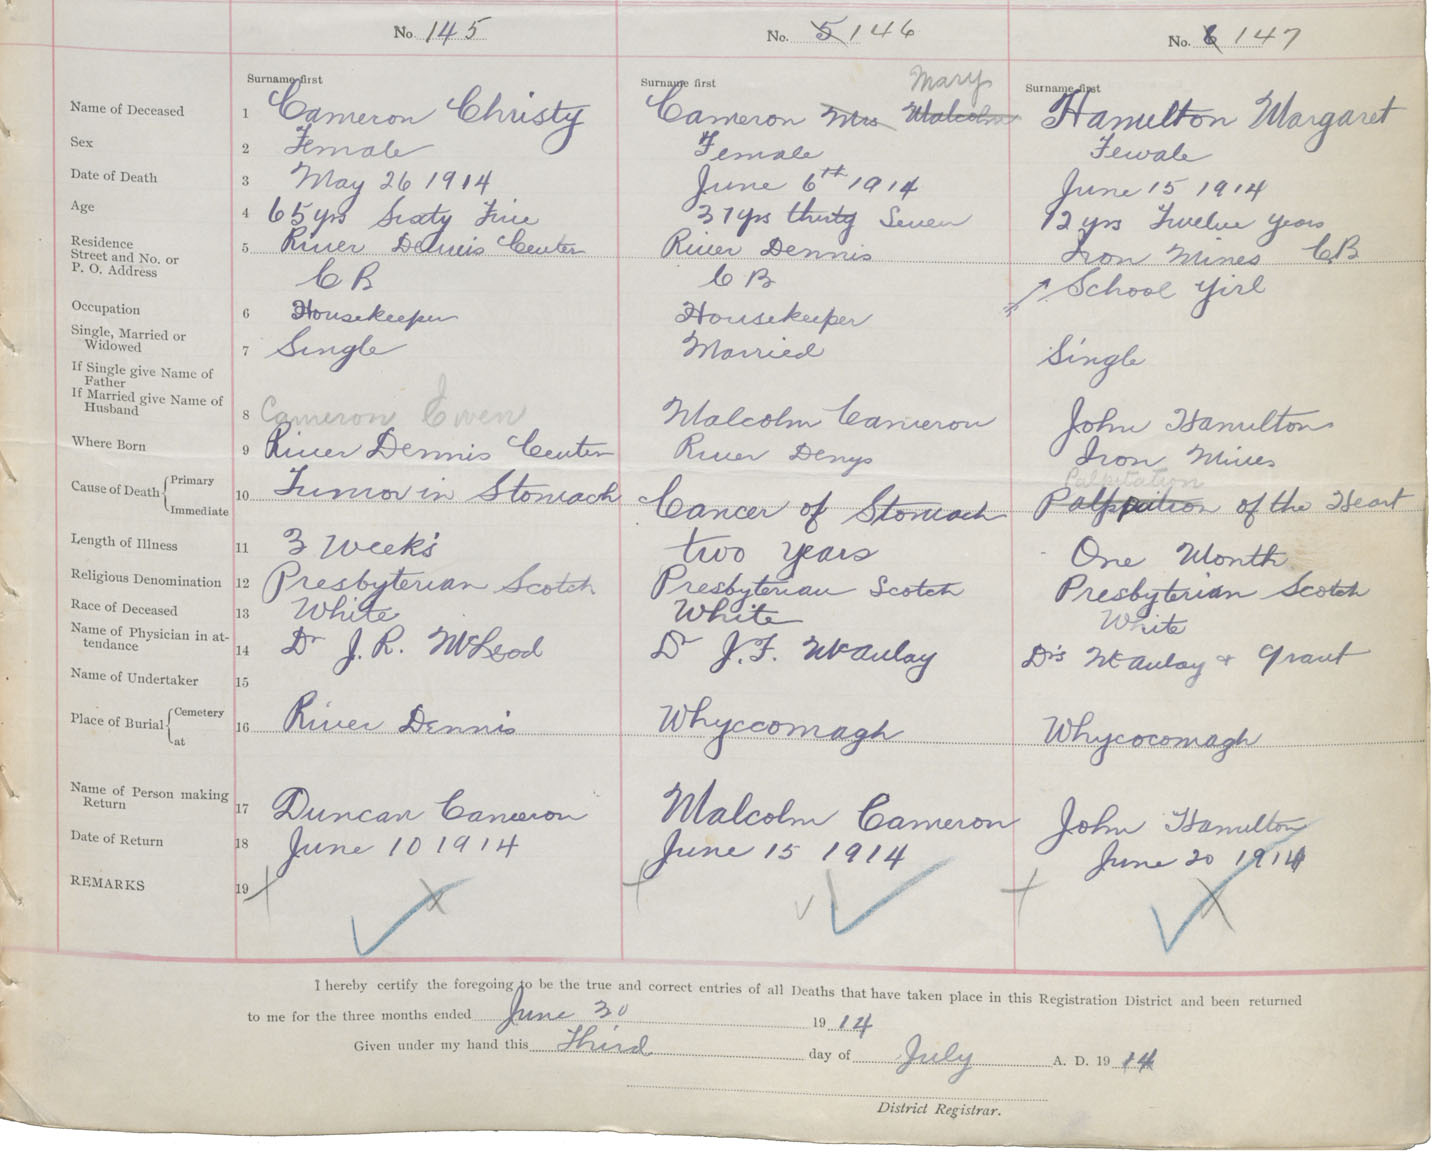 No. 145 No. 5 146 No. 6 147
Surname first Surname first Mary Surname first
Name of Deceased 1 Cameron Christy Cameron Mrs Malcolm Hamilton Margaret
Sex 2 Female Female Female
Date of Death 3 May 26 1914 June 6th 1914 June 15 1914
Age 4 65 yrs Sixty Five 37 yrs thirty Seven 12 yrs Twelve years
Residence
Street and No. or 5 River Dennis Center River Dennis Iron Mines CB
P. O. Address C B C B
School Girl
Occupation 6 Housekeeper Housekeeper
Single, Married or
Widowed 7 Single Married Single
If Single give Name of
Father
If Married give Name of
Husband 8 Cameron Ewen Malcolm Cameron John Hamilton
Where Born 9 River Dennis Center River Denys Iron Mines
Palpitation
Cause of Death Primary
Immediate 10 Tumor in Stomach Cancer of Stomach of the Heart
Length of Illness 11 3 Week's two years One Month
Religious Denomination 12 Presbyterian Scotch Presbyterian Scotch Presbyterian Scotch
Race of Deceased 13 White White White
Name of Physician in at-
tendance 14 Dr J. R. McLeod Dr J. F. McAulay Drs McAulay & Grant
Name of Undertaker 15
Place of Burial Cemetery
at 16 River Dennis Whyccomagh Whycocomagh
Name of Person making
Return 17 Duncan Cameron Malcolm Cameron John Hamilton
Date of Return 18 June 10 1914 June 15 1914 June 20 1914
REMARKS 19
I hereby certify the foregoing to be the true and correct entries of all Deaths that have taken place in this Registration District and been returned
to me for the three months ended June 30 19 14
Given under my hand this Third day of July A. D. 19 14
District Registrar.